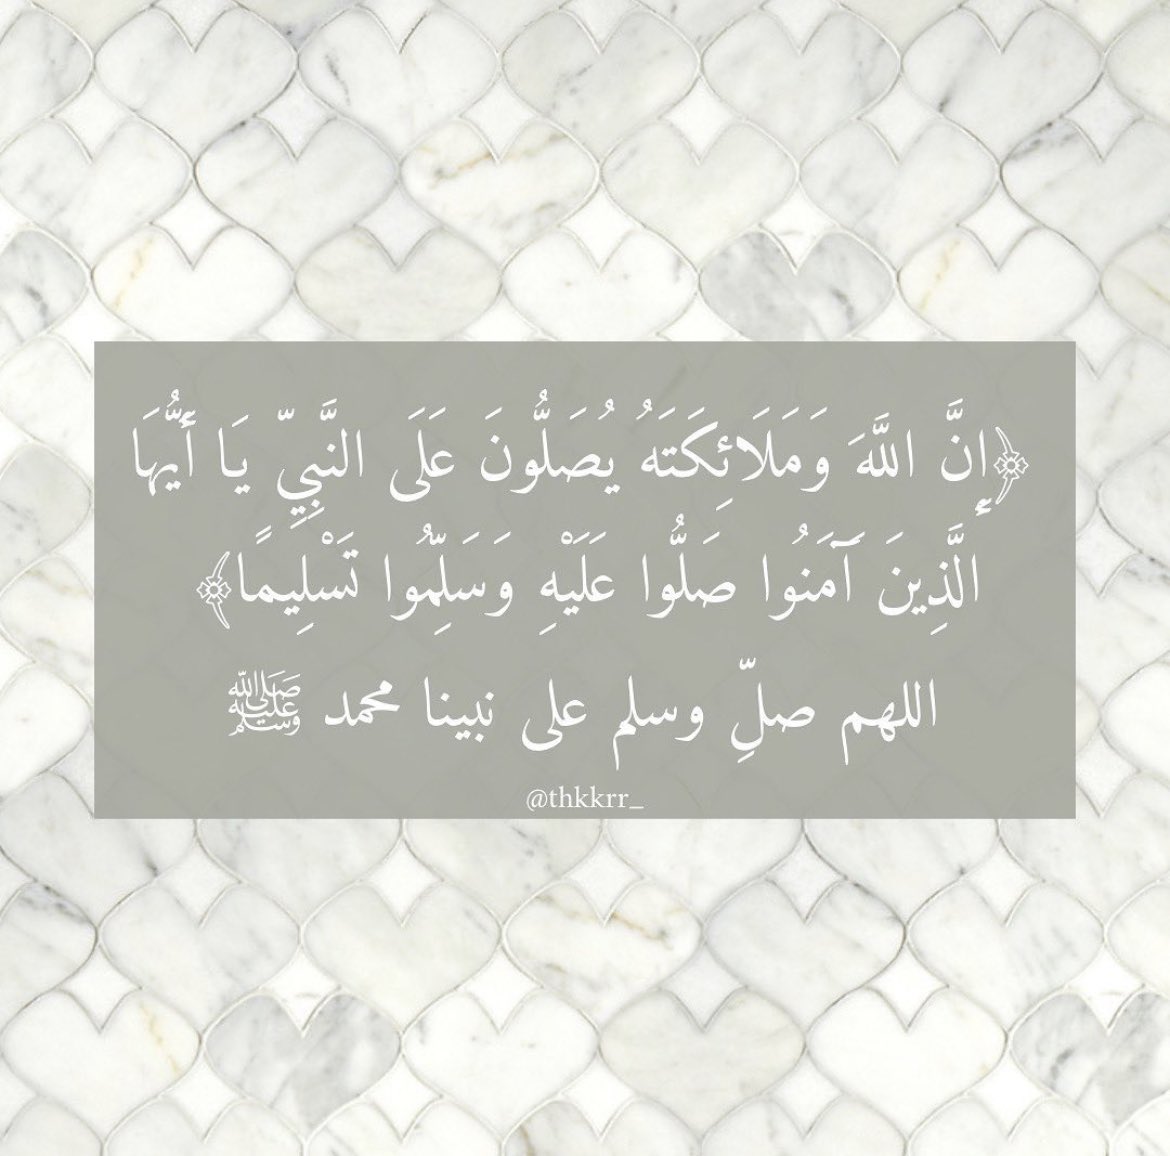 ﴿إِنَّ اللَّهَ وَمَلَائِكَتَهُ يُصَلُّونَ عَلَى النَّبِيِّ يَا أَيُّهَا
الَّذِينَ آمَنُوا صَلُّوا عَلَيْهِ وَسَلِّمُوا تَسْلِيمًا﴾
اللهم صلِّ وسلم على نبينا محمد ﷺ
@thkkrr_